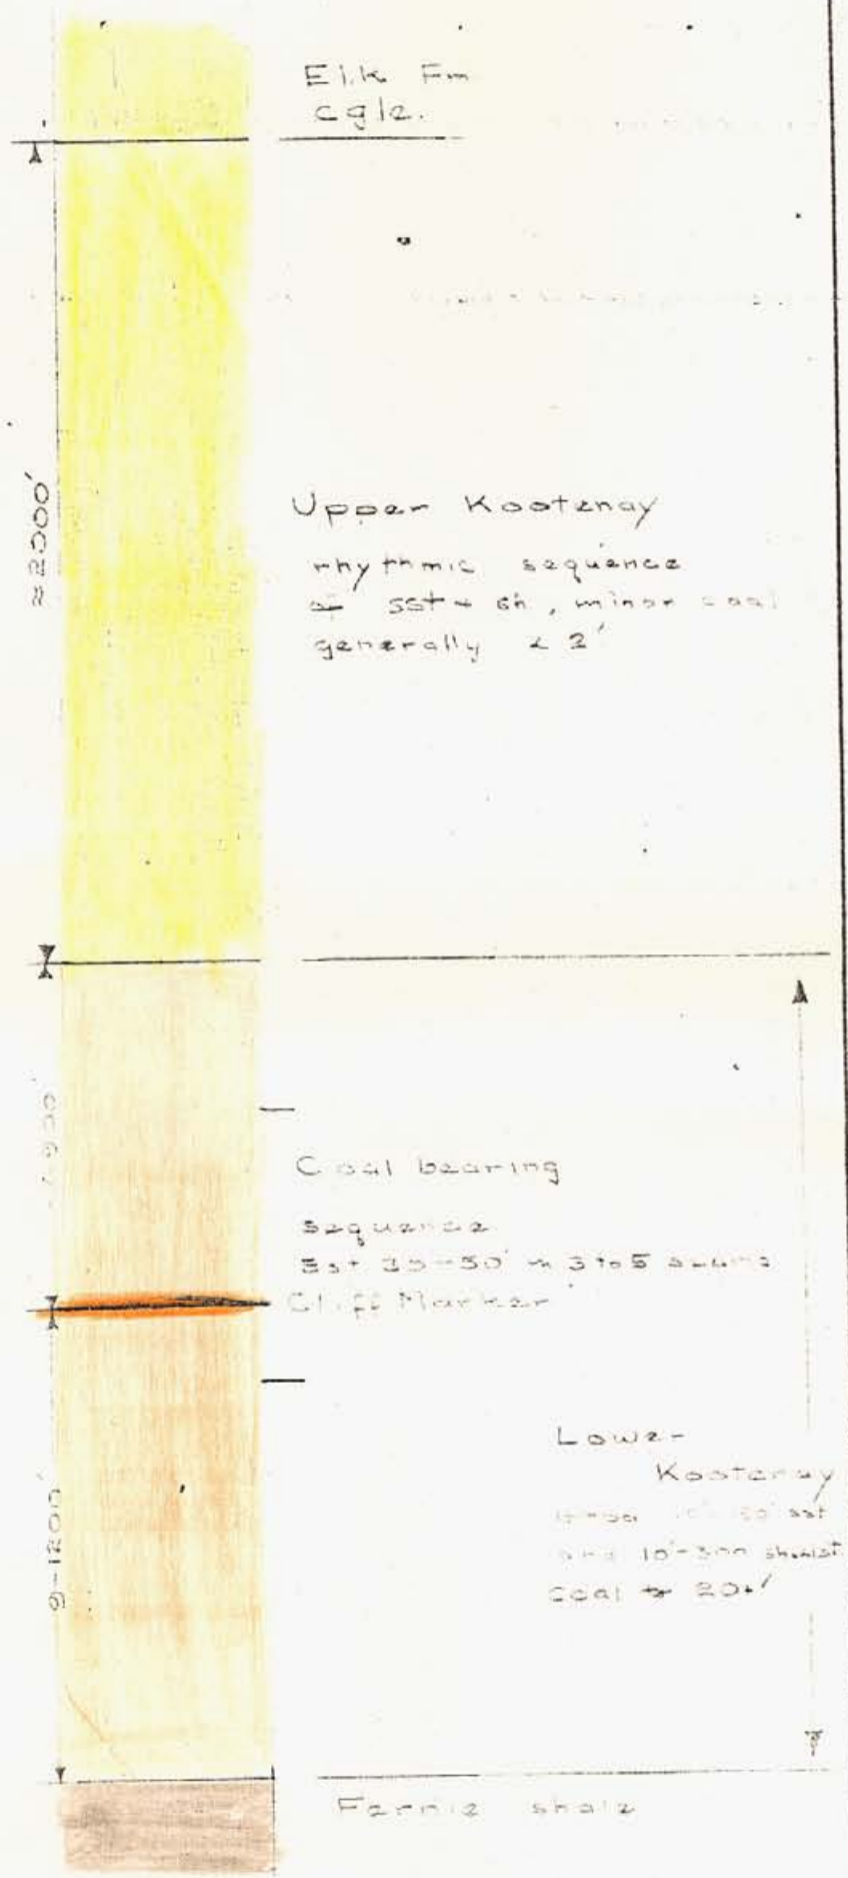 Elk Fm
cgle.
≈2000'
Upper Kootenay
rhythmic sequence
of sst + sh, minor coal
generally < 2'
Coal bearing
sequence
Est 35-50' in 3 to 5 seams
Cliff Marker
9-1200'
Lower
Kootenay
sst
and 10'-300
coal to 20+'
Fernie shale